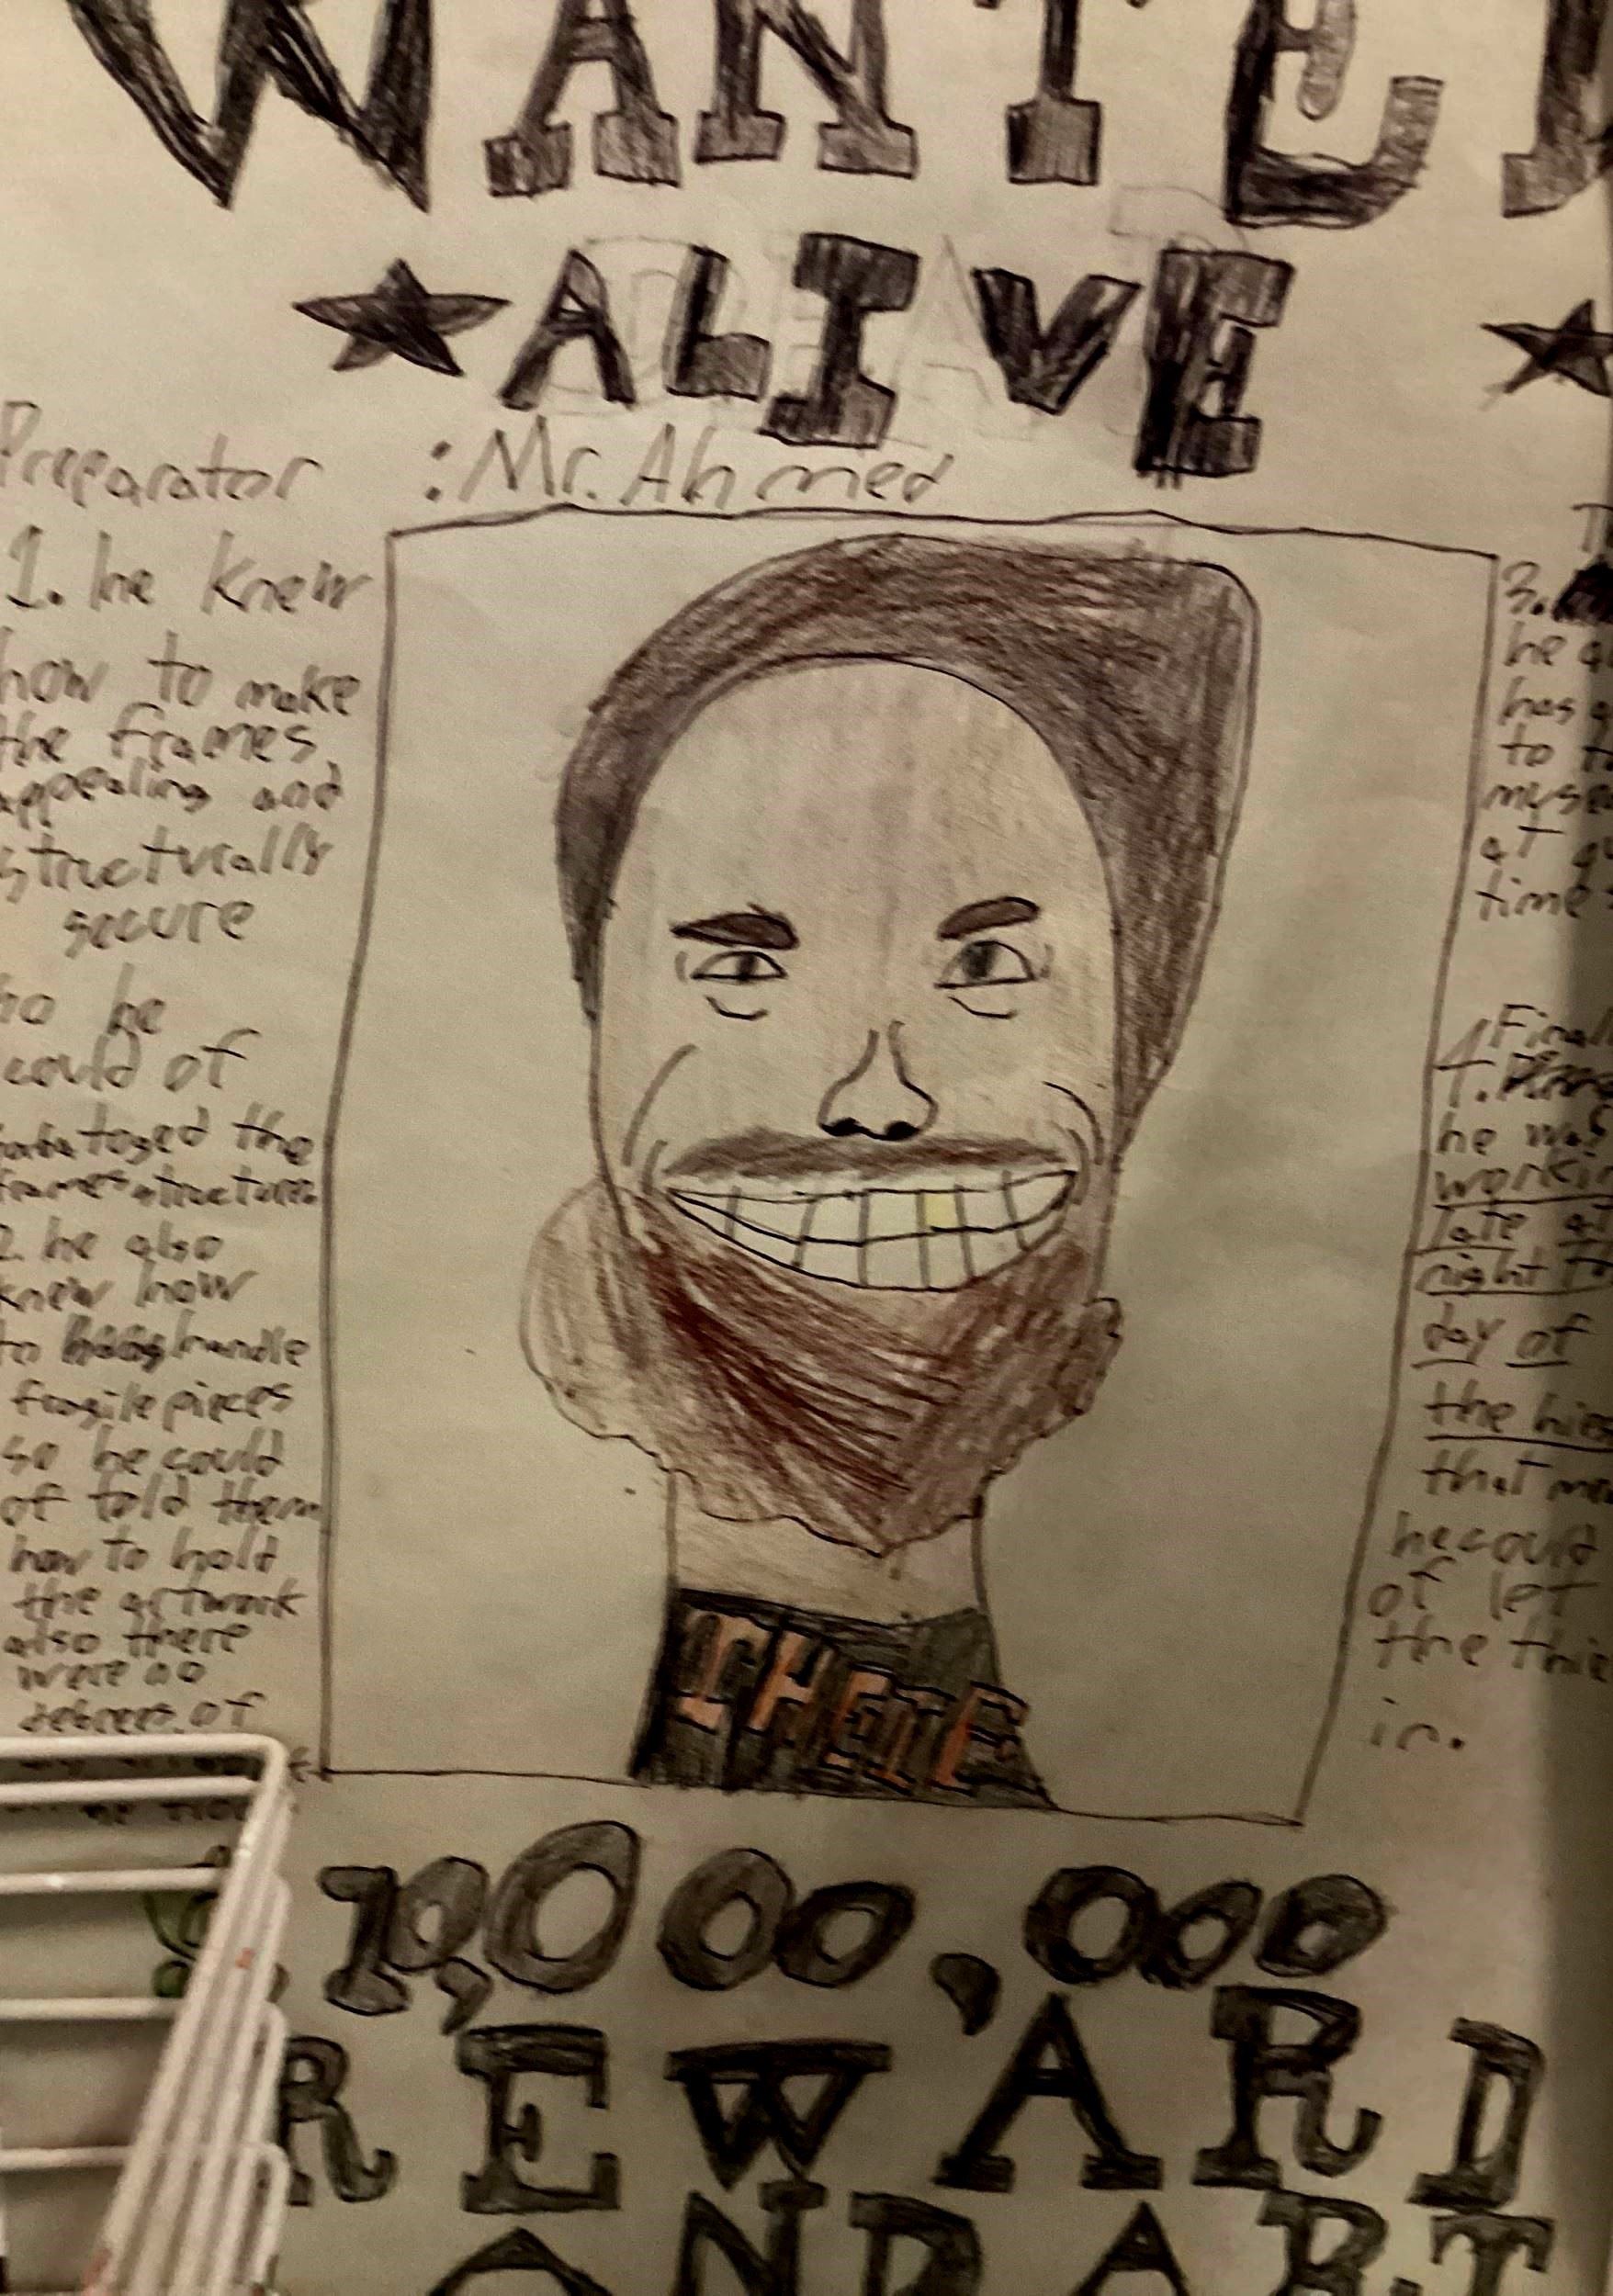 WANTED
ALIVE
Preparator : Mr. Ahmed
1. he knew
how to make
the frames
appealing and
structurally
secure
so he
could of
the
he also
knew how
to handle
fragile pieces
so he could
of told them
how to hold
the artwork
also there
were no
degrees of
3.
he
has
to
at
time
4. Final
he was
workin
late at
night
day of
the
that
he could
of let
the
in.
THEIE
10,000,000
REWARD
AND ART